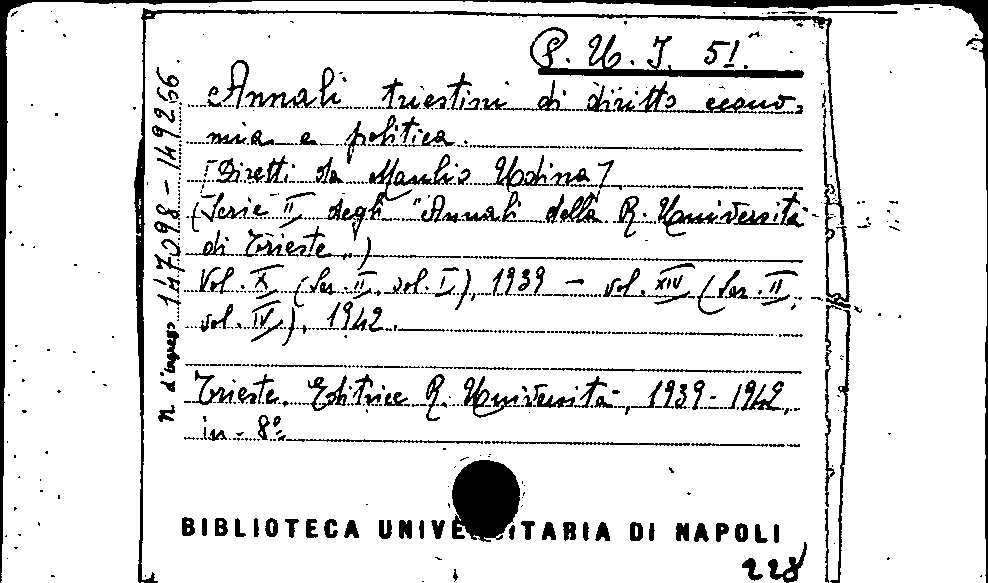 P. U. J. 51.
Annali triestini di diritto econo-
mia e politica.
[Diretti da Manlio Udina]
(Serie II degli "Annali della R. Università
di Trieste")
Vol. X (Ser. II. vol. I), 1939 – vol. XIV (Ser. II,
vol. IV), 1942.
Trieste. Editrice R. Università, 1939-1942,
in-8º
N. d'ingresso 147098-149266.
BIBLIOTECA UNIVE ITARIA DI NAPOLI
228